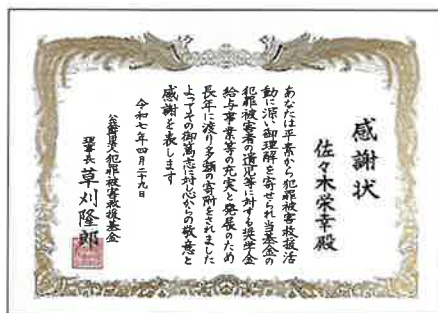 感謝状
佐々木栄幸殿
あなたは平素から犯罪被害救援活
動に深い御理解を寄せられ当基金の
犯罪被害者の遺児等に対する奨学金
給与事業等の充実と発展のため
長年に渡り多額の寄附をされました
よってその御篤志に対し心からの敬意と
感謝を表します
令和七年四月二十九日
公益財団法人犯罪被害救援基金
理事長 草刈隆郎